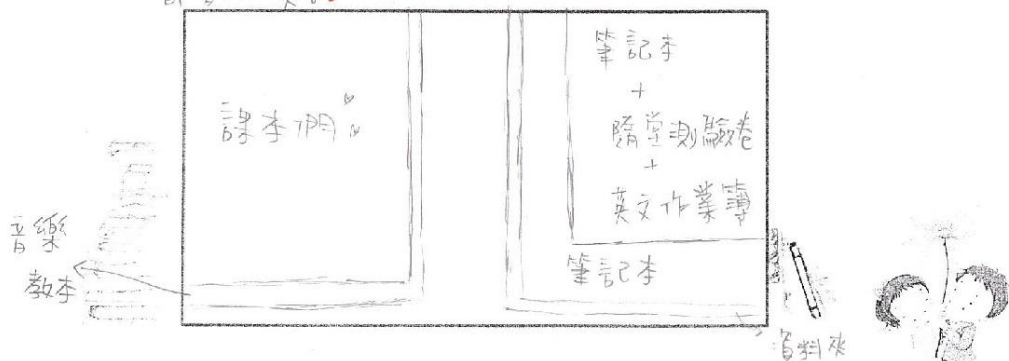 課本們
筆記本
+
隨堂測驗卷
+
英文作業簿
筆記本
音樂
教本
資料夾